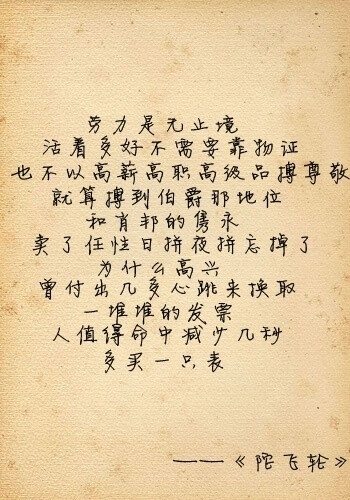 劳力是无止境
活着多好不需要靠物证
也不以高薪高职高级品搏尊敬
就算搏到伯爵那地位
和肖邦的隽永
卖了任性日拼夜拼忘掉了
为什么高兴
曾付出几多心跳来换取
一堆堆的发票
人值得命中减少几秒
多买一只表
——《陀飞轮》